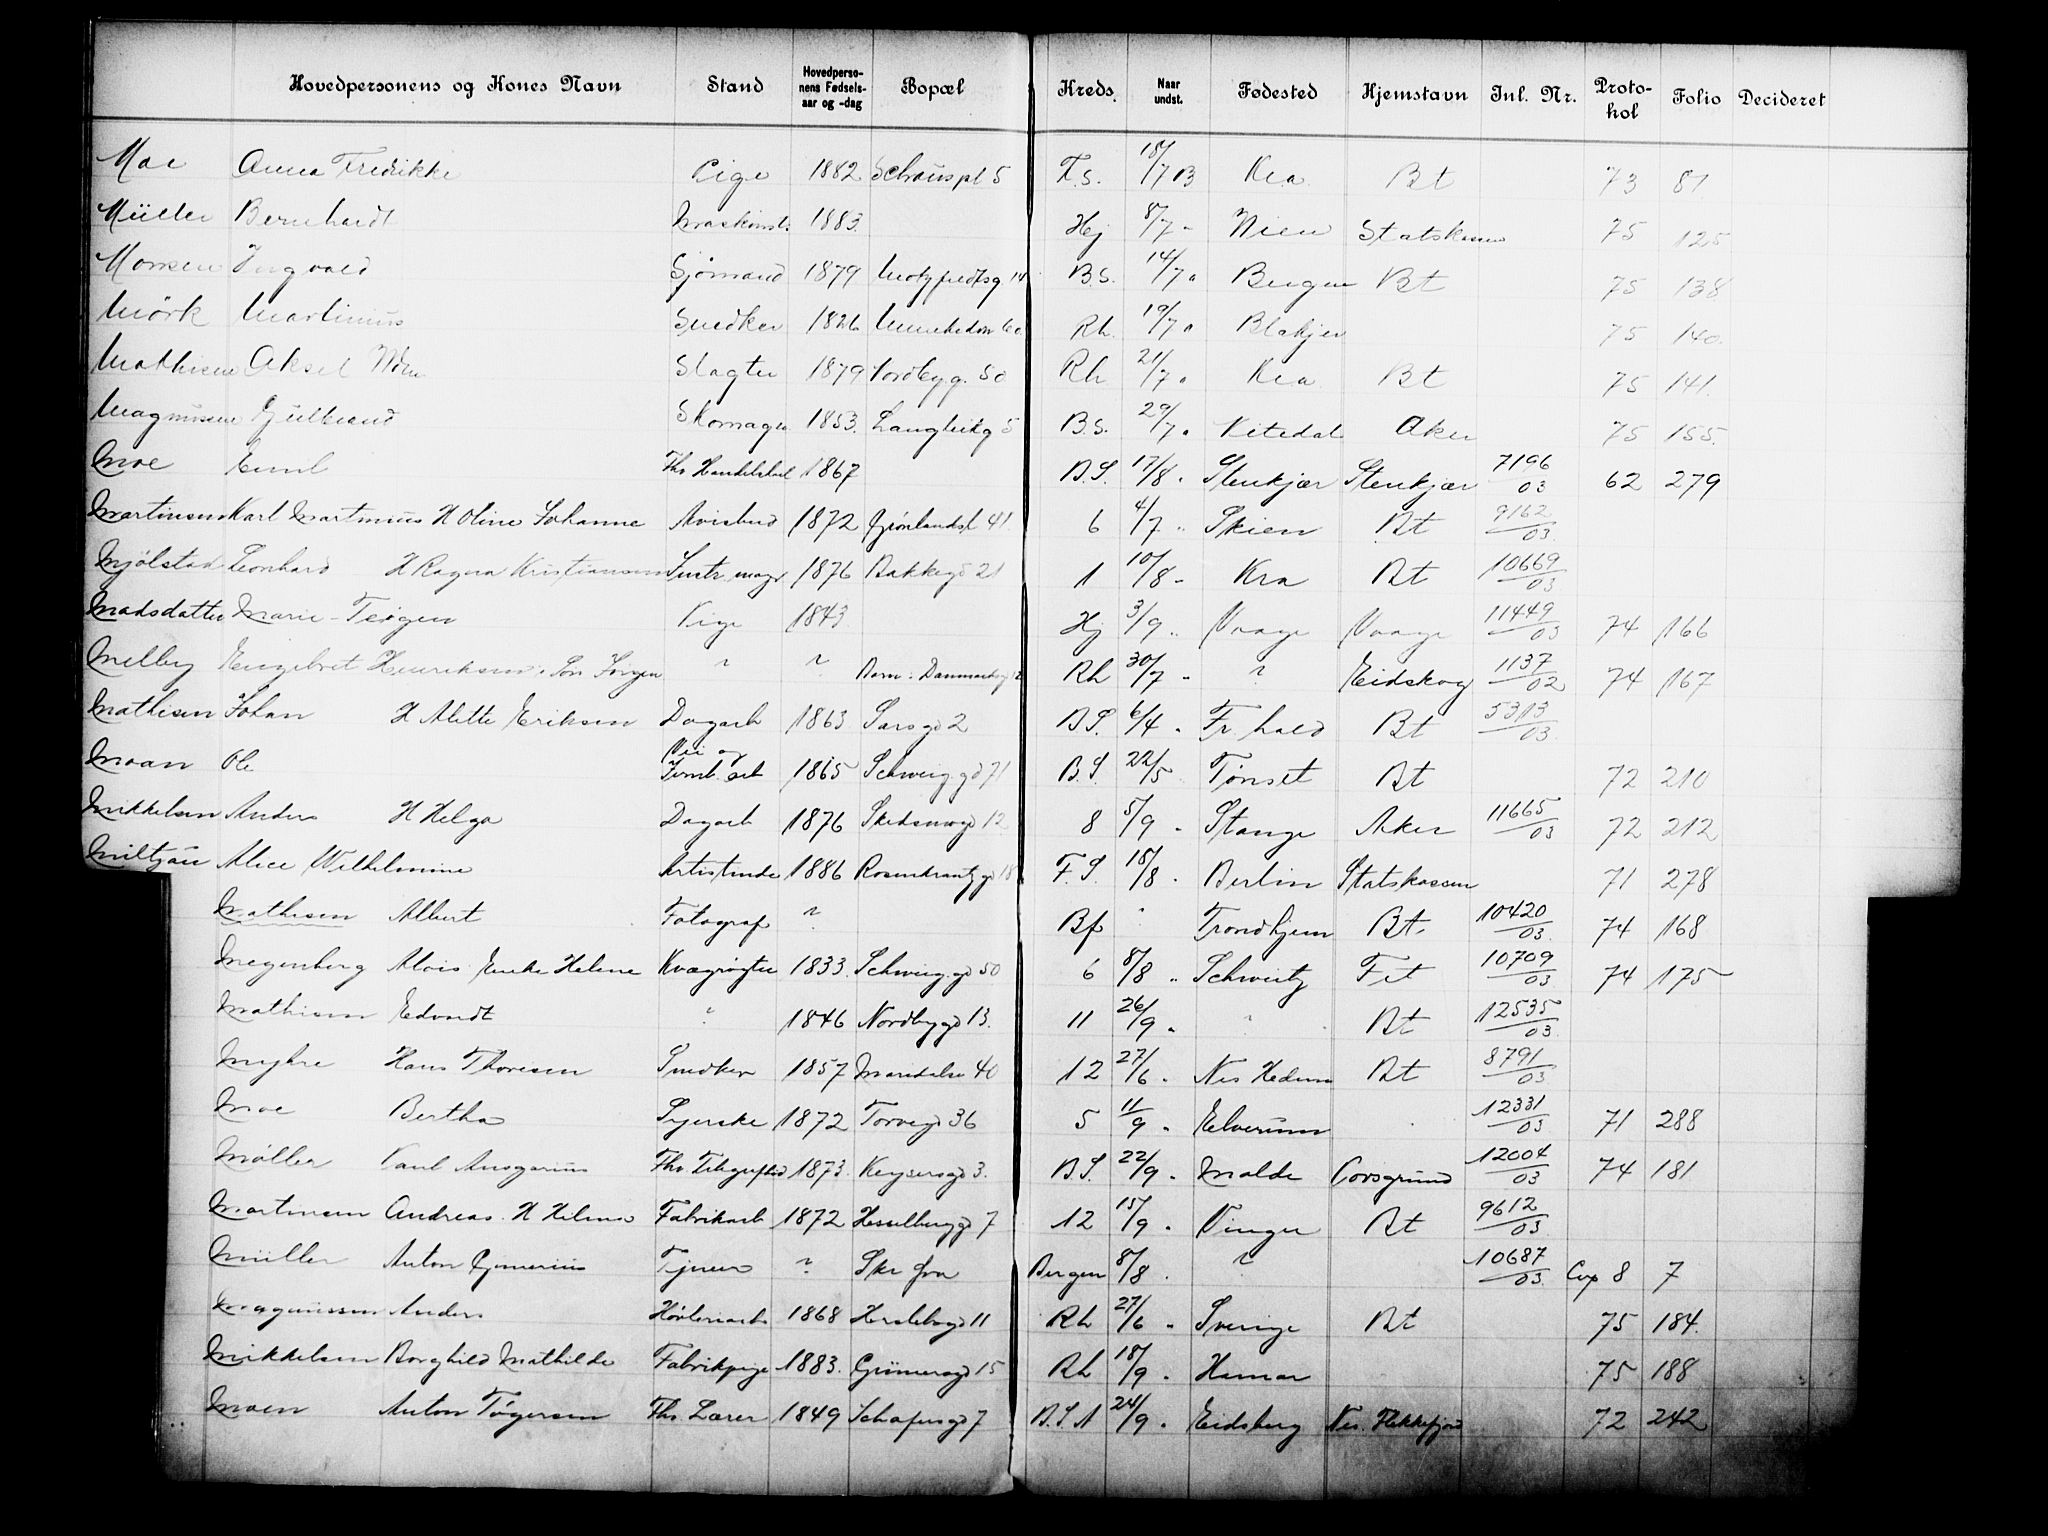 Hovedpersonens og Kones Navn Stand Hovedperso-nens Fødsels-aar og -dag Bopæl Kreds. Naar undst. Fødested Hjemstavn Inl. Nr. Proto-kol Folio Decideret
Moe Anna Fredrikke Pige 1882 Schouspl 5 F.S. 18/7 03 Kra Bt 73 81
Müller Bernhardt 1883. Hej 8/7 - Wien Statskassen 75 125
Monsen Ingvald Sjömand 1879 14 B.S. 14/7 " Bergen Bt 75 138
Mörk Martinius Snedker 1826 Rh. 19/7 " Blakjer 75 140.
Mathisen Aksel Wm Slagter 1879 Nordbyg. 50 Rh 21/7 " Kra Bt 75 141.
Magnussen Skomager 1853. Langleikg 5 B.S. 29/7 " Aker 75 155.
Moe Emil 1867 B.S. 17/8 " Stenkjær Stenkjær 7196/03 62 279
Martinsen Karl Martinius H Oline Johanne Avisbud 1872 Grönlandsl 41. 6 4/7 " Skien Bt 9162/03.
Mjölstad Leonhard H Ragna Kristiansen 1876 Bakkegd 21 1 10/8 - Kra Bt 10669/03
Madsdatter Marie - Teigen Pige 1843 Hj 3/9 " Vaage Vaage 11449/03 74 166
Melby Engebret Henriksen, Søn Jörgen " " Barn: Danmarksg 12 Rh 30/7 - ? Eidskog 1137/02 74 167
Mathisen Johan H Alette Eriksen Dagarb 1863 Sarsgd 2 B.S. 6/4 " Fr. hald Bt 5313/03.
Moan Ole Vei og Jernb. arb 1865 Schweig.gd 71 B.S. 22/5 Tönset Bt 72 210
Mikkelsen Anders H Helga Dagarb 1876 Skedsmogd 12 8 5/9 " Stange Aker 11665/03 72 212
Alice Wilhelmine Artistinde 1886 Rosenkrantzgd 18 F.S. 18/8 " Berlin Statskassen 71 278
Mathisen Albert Fotograf ? Bf " Trondhjem Bt. 10420/03. 74 168
Megenberg Alois Enke Helene Kvægrøgter 1833. Schweig.gd 50 6 8/8 " Schweitz Fet 10709/03. 74 175
Mathisen Edvardt " 1846 Nordbygd 13. 11 26/9 " " Bt 12535/03.
Myhre Hans Thoresen Snedker 1857 Maridalsv 40 12 27/6 " Nes Hedem Bt 8791/03
Moe Bertha Syerske 1872 Torvegd 36 5 11/9 " Elverum 12331/03 71 288
Möller Paul Ansgarius 1873. Keysersgd 3. B.S. 22/9 " Molde Porsgrund 12004/03 74 181
Martinsen Andreas. H Helma Fabrikarb 1872 Hesselberggd 7 12 15/9 " Vinger Bt 9612/03.
Müller Anton Tjener ? Skr fra Bergen 8/8 . ? 10687/03. Cop 8 7
Magnussen Anders Hövleriarb 1868 Herslebsgd 11 Rh 27/6 " Sverige Bt 75 184.
Mikkelsen Borghild Mathilde Fabrikpige 1883. Grünersgd 15 Rh 18/9 " Hamar 75 188
Moen Anton Tögersen Fhv. Lærer 1849 Schafersgd 7 B.S.A 24/9 " Eidsberg Nes. Flekkefjord 72 242